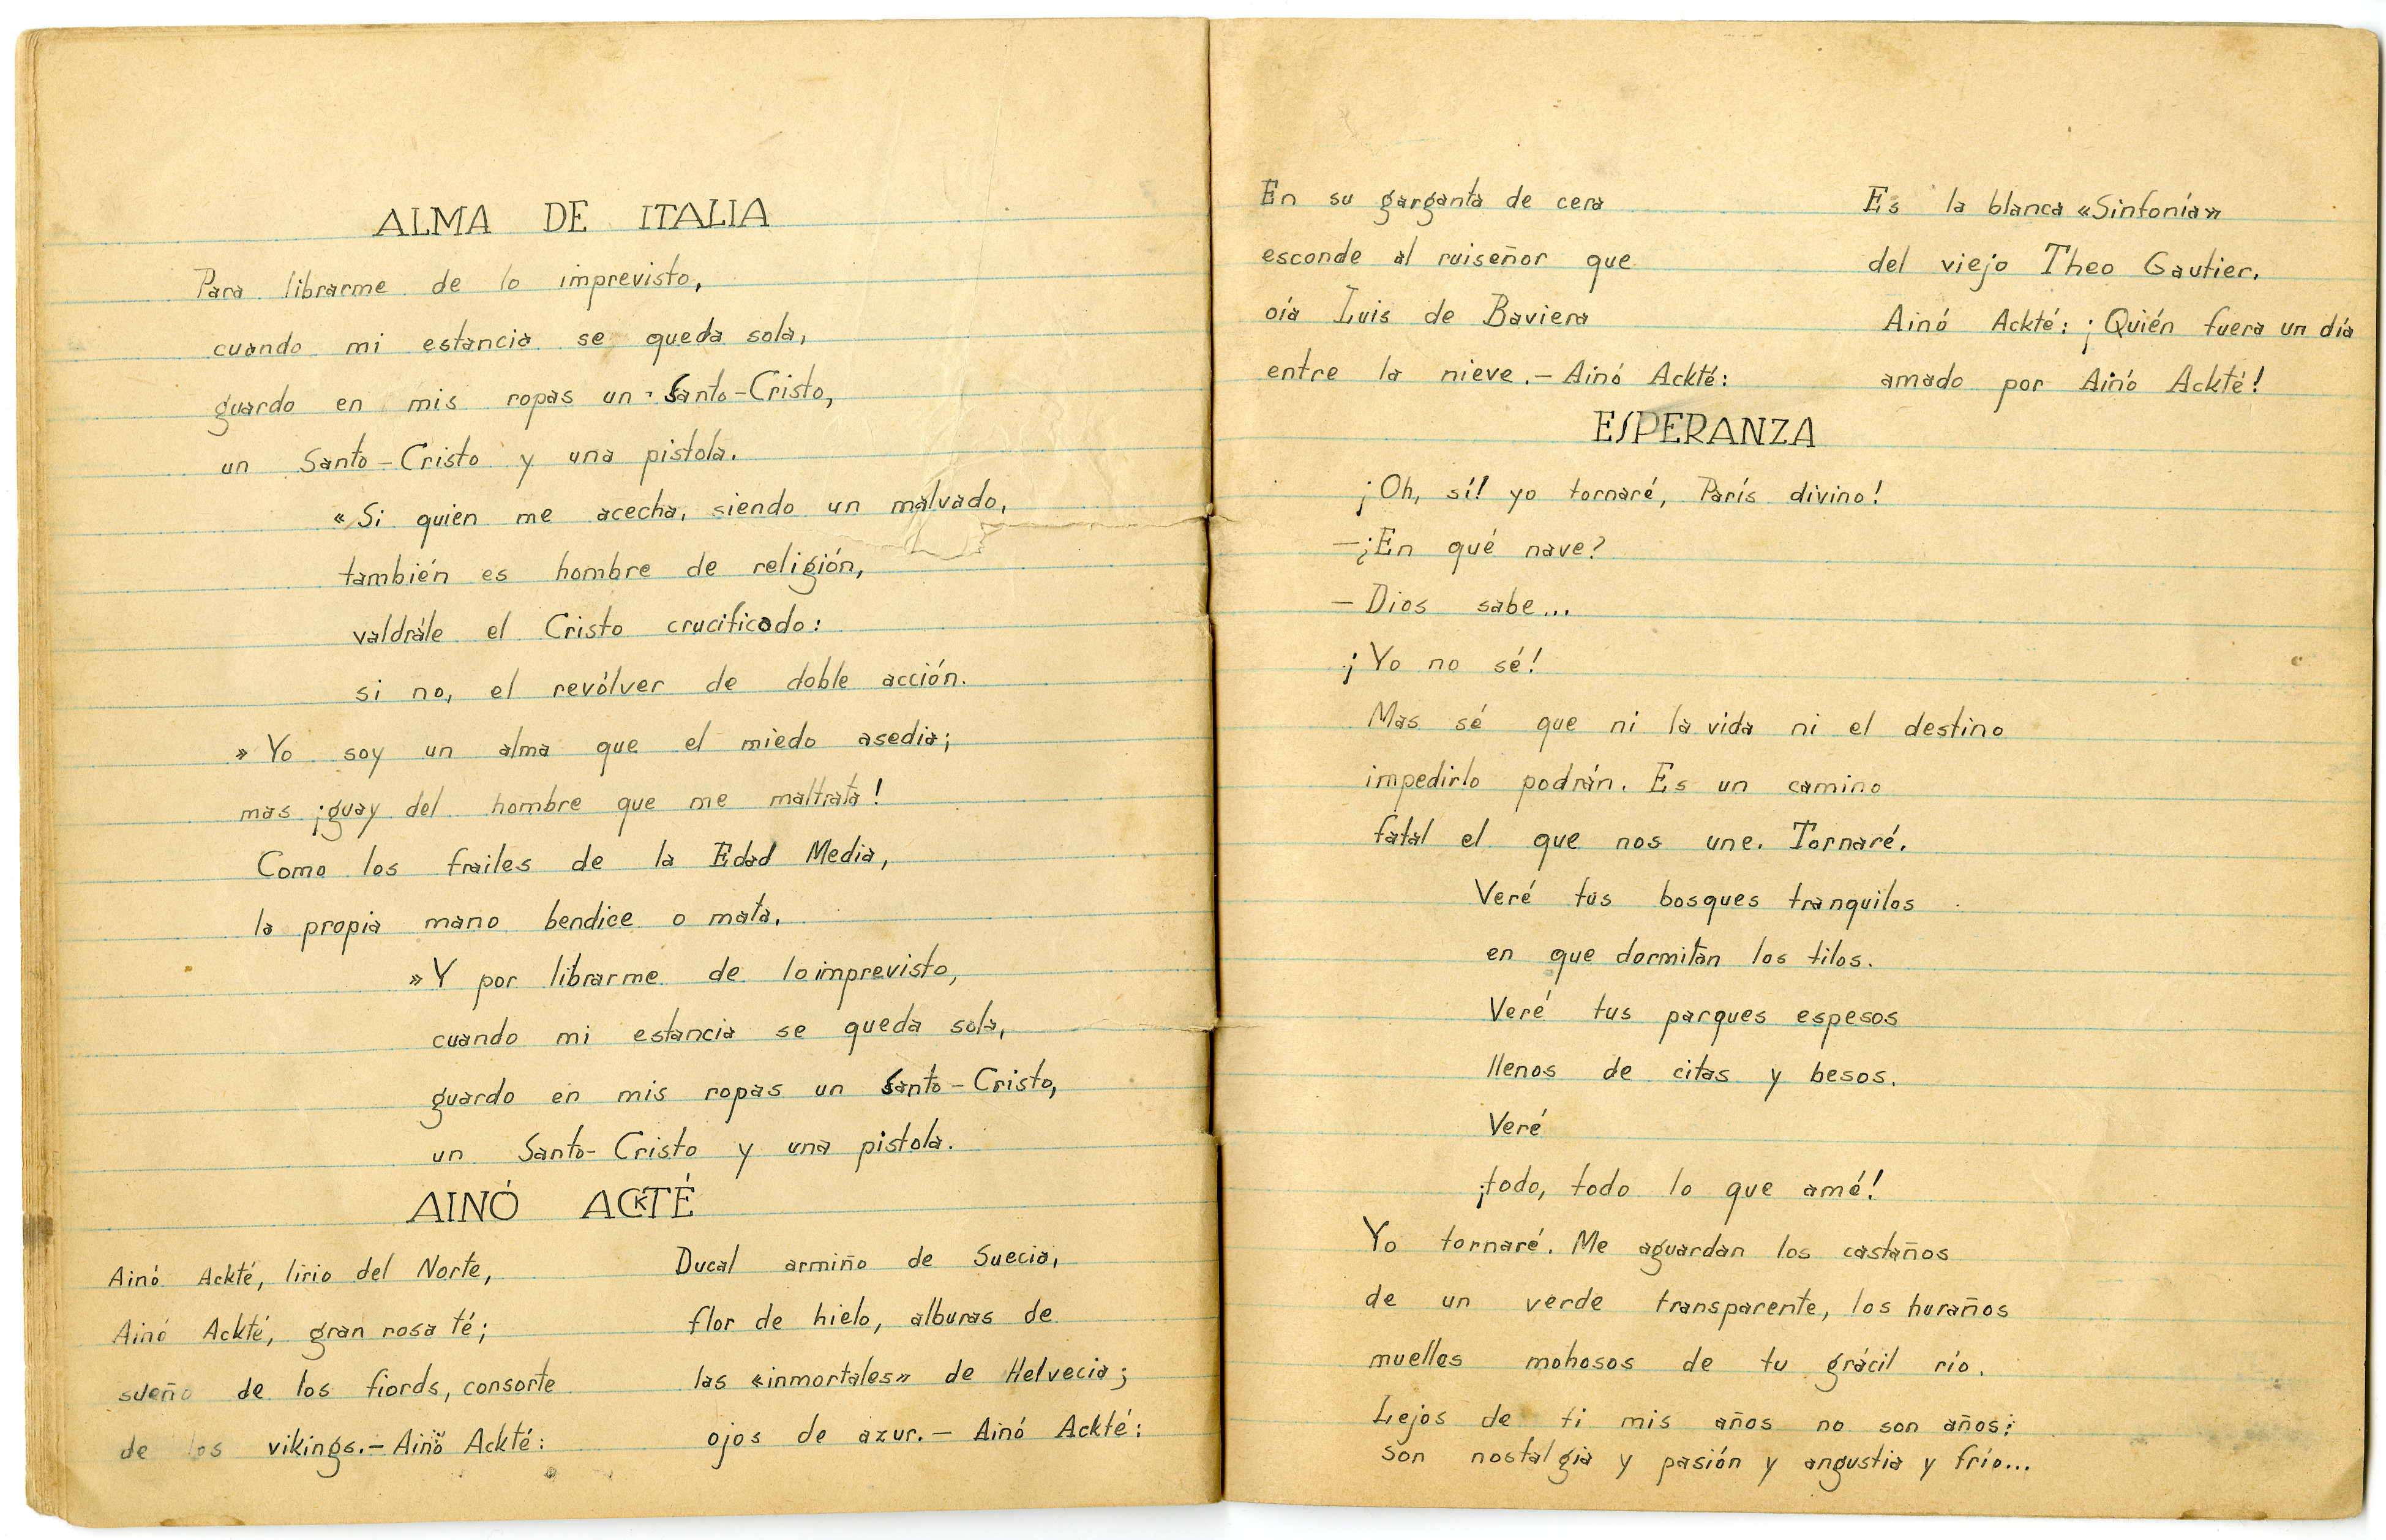 ALMA DE ITALIA
Para librarme de lo imprevisto,
cuando mi estancia se queda sola,
guardo en mis ropas un Santo-Cristo,
un Santo-Cristo y una pistola.
«Si quien me acecha, siendo un malvado,
también es hombre de religión,
valdrále el Cristo crucificado:
si no, el revólver de doble acción.
»Yo soy un alma que el miedo asedia;
mas ¡guay del hombre que me maltrata!
Como los frailes de la Edad Media,
la propia mano bendice o mata.
»Y por librarme de lo imprevisto,
cuando mi estancia se queda sola,
guardo en mis ropas un Santo-Cristo,
un Santo-Cristo y una pistola.
AINÓ ACKTÉ
Ainó Ackté, lirio del Norte,
Ainó Ackté, gran rosa té;
sueño de los fiords, consorte
de los vikings.—Ainó Ackté:
Ducal armiño de Suecia,
flor de hielo, alburas de
las «inmortales» de Helvecia;
ojos de azur.—Ainó Ackté:
En su garganta de cera
esconde al ruiseñor que
oía Luis de Baviera
entre la nieve.—Ainó Ackté:
Es la blanca «Sinfonía»
del viejo Theo Gautier.
Ainó Ackté: ¡Quién fuera un día
amado por Ainó Ackté!
ESPERANZA
¡Oh, sí! yo tornaré, París divino!
—¿En qué nave?
—Dios sabe...
¡Yo no sé!
Mas sé que ni la vida ni el destino
impedirlo podrán. Es un camino
fatal el que nos une. Tornaré.
Veré tus bosques tranquilos
en que dormitan los tilos.
Veré tus parques espesos
llenos de citas y besos.
Veré
¡todo, todo lo que amé!
Yo tornaré. Me aguardan los castaños
de un verde transparente, los huraños
muelles mohosos de tu grácil río.
Lejos de ti mis años no son años:
son nostalgia y pasión y angustia y frío...